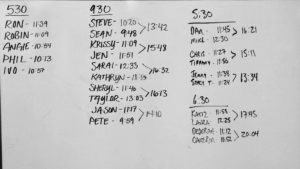 530
RON - 11:39
ROBIN - 11:09
ANGIE - 10:54
PHIL - 10:13
IVO - 10:57
430
STEVE - 10:20
SEAN - 9:48
13:42
KRISSY - 11:09
JEN - 11:51
15:48
SARAI - 12:33
KATHRYN - 11:13
16:32
SHERYL - 11:46
TAYLOR - 13:03
16:13
JASON - 11:17
PETE - 9:59
14:10
5.30
DAN - 11:45
MIKE - 12:30
16:21
CHRIS - 11:27
TIFFANY - 11:50
15:11
JENNA - 11:38
13:34
6.30
KATIE 11:53
LAURA 12:25
17:45
DEBORAH - 11:12
CAMERON - 11:52
20:04